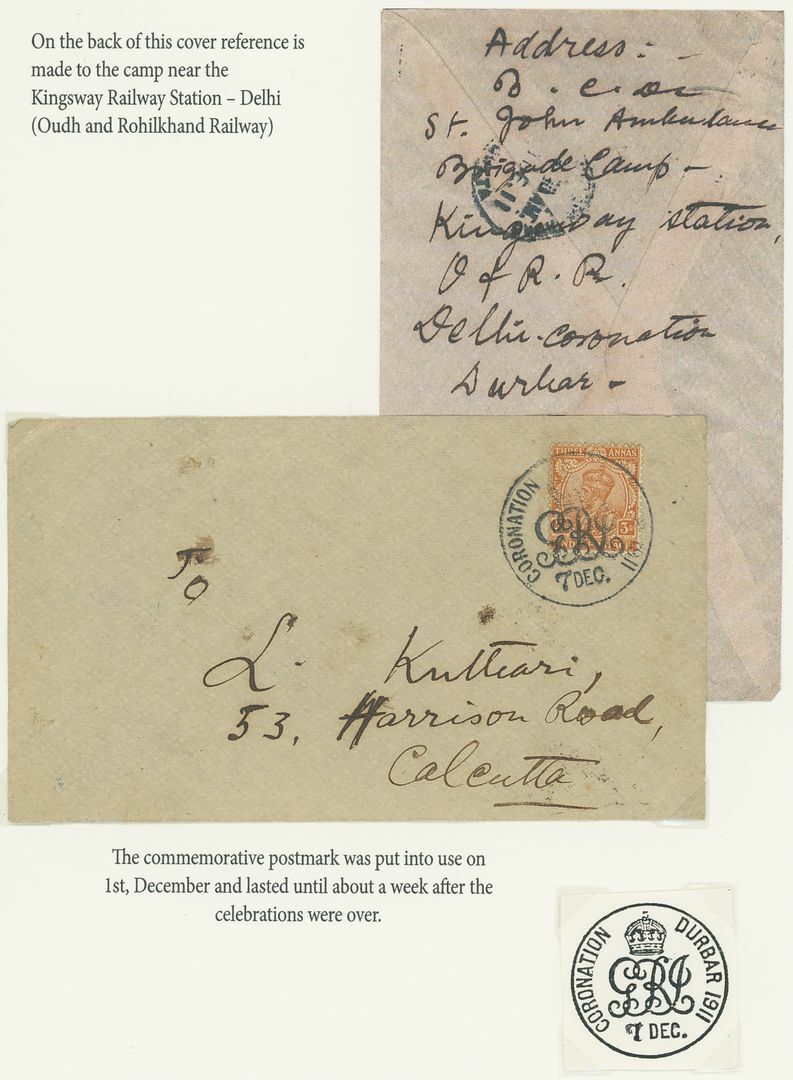 On the back of this cover reference is
made to the camp near the
Kingsway Railway Station – Delhi
(Oudh and Rohilkhand Railway)
Address: -
B. C. De
St. John Ambulance
Brigade Camp -
Kingsway station,
O & R. R.
Delhi-coronation
Durbar -
THREE ANNAS
3
CORONATION
GRI
7 DEC.
11
To
L. Kuttari,
53, Harrison Road,
Calcutta
The commemorative postmark was put into use on
1st, December and lasted until about a week after the
celebrations were over.
CORONATION DURBAR 1911
GRI
7 DEC.